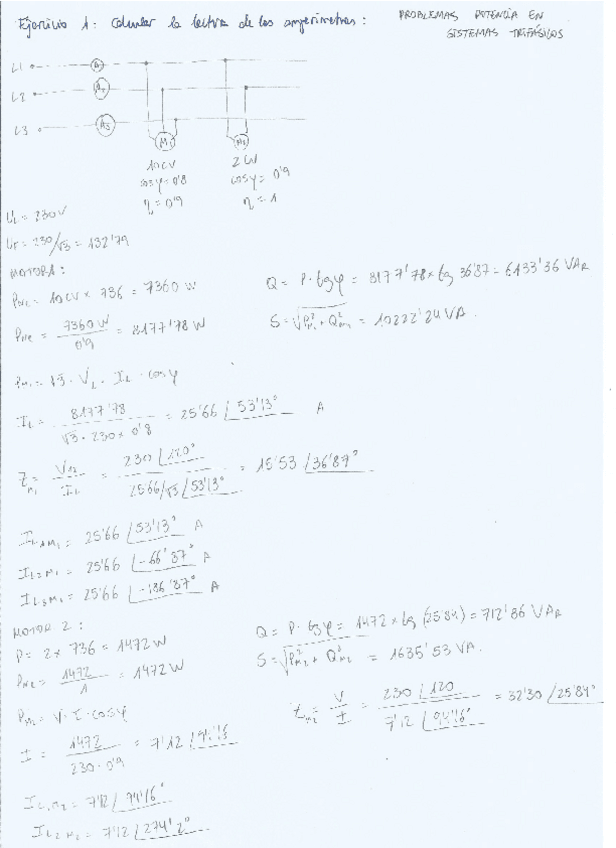 Ejercicio 1: Calcular la lectura de los amperímetros:
PROBLEMAS POTENCIA EN
SISTEMAS TRIFÁSICOS
L1
L2
L3
A2
A3
M1
10CV
cosφ = 0'8
η = 0'9
cosφ = 0'9
η = 1
UL = 230V
UF = 230/√3 = 132'79
MOTOR 1:
= 10CV × 736 = 7360 W
= 7360 W / 0'9 = 8177'78 W
Q = P · tgφ = 8177'78 × tg 36'87 = 6133'36 VAR
S = √P²M1 + Q²M1 = 10222'24 VA.
PM1 = √3 · VL · IL · cosφ
IL = 8177'78 / √3 · 230 × 0'8 = 25'66 ∠53'13° A
ZM1 = V12 / IL = 230 ∠120° / 25'66/√3 ∠53'13° = 15'53 ∠36'87°
IL1M1 = 25'66 ∠53'13° A
IL2M1 = 25'66 ∠-66'87° A
IL3M1 = 25'66 ∠-186'87° A
MOTOR 2:
P = 2 × 736 = 1472W
PM2 = 1472 / 1 = 1472 W
Q = P · tgφ = 1472 × tg (25'84) = 712'86 VAR
S = √P²M2 + Q²M2 = 1635'53 VA.
PM2 = V · I · cosφ
I = 1472 / 230 · 0'9 = 7'12
ZM2 = V / I = 230 ∠120 / 7'12 ∠94'16° = 32'30 ∠25'84°
IL1M2 = 7'12 ∠94'16°
IL2M2 = 7'12 ∠274'2°